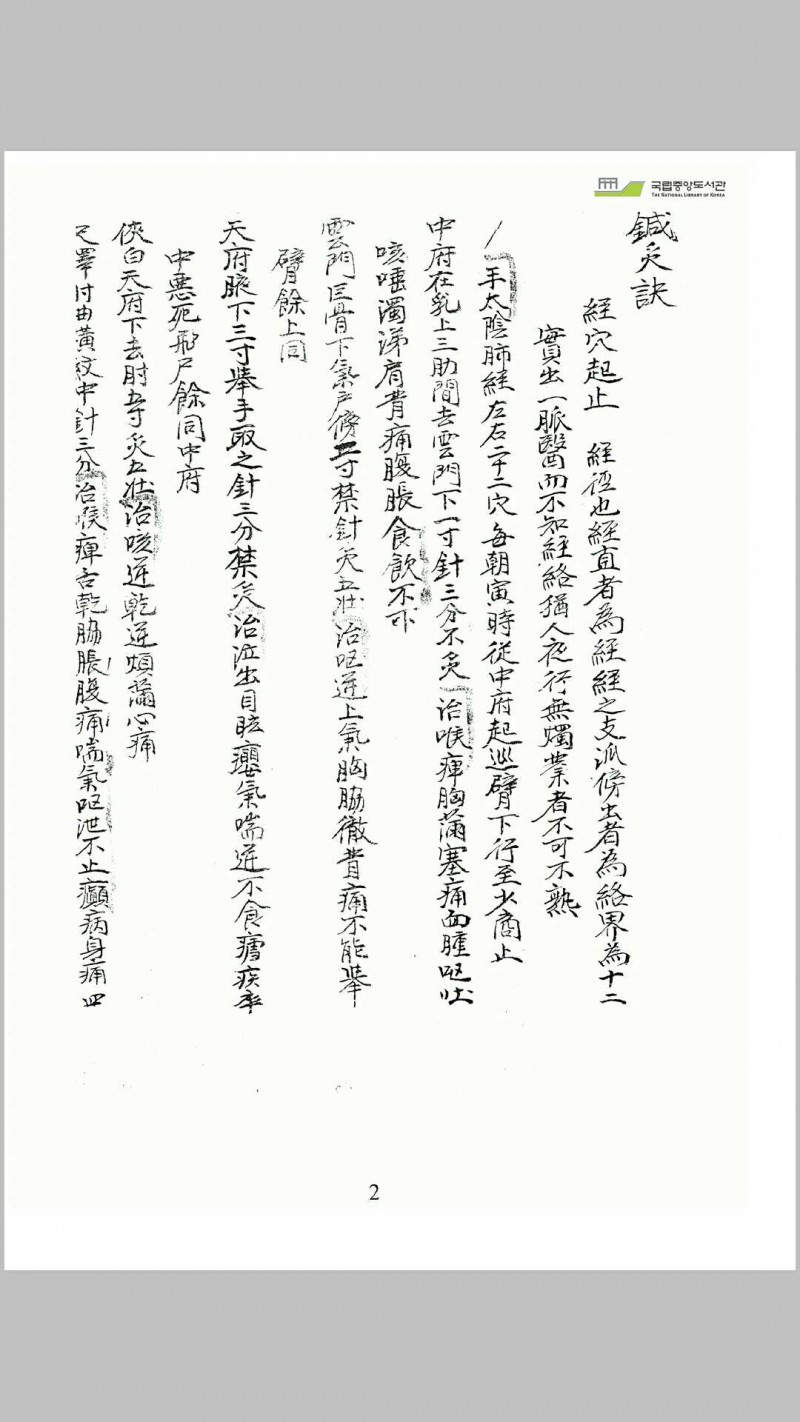 국립중앙도서관
THE NATIONAL LIBRARY OF KOREA
鍼灸訣
經穴起止 經徑也經直者為經經之支派傍出者為絡界為十二
實出一脈醫而不知經絡猶人夜行無燭業者不可不熟
手太陰肺經左右二十二穴每朝寅時從中府起巡臂下行至少商止
中府在乳上三肋間去雲門下一寸針三分不灸治喉痺胸滿塞痛面腫嘔吐
咳唾濁涕肩背痛腹脹食飲不下
雲門巨骨下氣戶傍二寸禁針灸五壯治嘔逆上氣胸脇徹背痛不能舉
臂餘上同
天府腋下三寸舉手取之針三分禁灸治泣出目眩癭氣喘逆不食瘧疾卒
中惡死形尸餘同中府
俠白天府下去肘五寸灸五壯治咳逆乾逆煩滿心痛
尺澤肘曲黃紋中針三分治喉痺舌乾脇脹腹痛喘氣嘔泄不止癲病身痛四
2